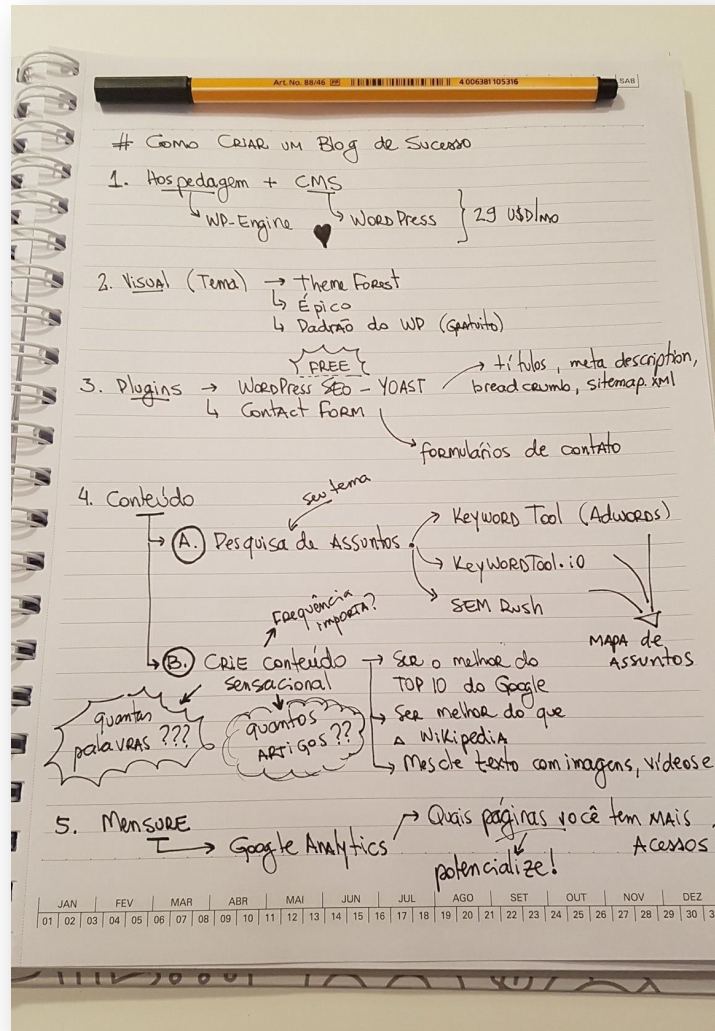 Art. No. 88/46 4 006381 105316
SAB
# Como CRIAR um Blog de Sucesso
1. Hospedagem + CMS
WP-Engine WordPress 29 U$D/mo
2. Visual (Tema) → Theme Forest
↳ Épico
↳ Padrão do WP (Gratuito)
FREE
3. Plugins → WordPress SEO - YOAST → títulos, meta description,
breadcrumb, sitemap.xml
↳ Contact Form
formulários de contato
4. Conteúdo
seu tema
A. Pesquisa de Assuntos
Keyword Tool (Adwords)
KeywordTool.io
SEM Rush
MAPA de
Assuntos
Frequência
importa?
B. CRIE conteúdo
sensacional
→ Ser o melhor do
TOP 10 do Google
→ Ser melhor do que
a Wikipedia
→ Mescle texto com imagens, vídeos e
quantas
palavras ???
quantos
artigos ??
5. Mensure
→ Google Analytics
→ Quais páginas você tem mais
Acessos
potencialize!
JAN FEV MAR ABR MAI JUN JUL AGO SET OUT NOV DEZ
01 02 03 04 05 06 07 08 09 10 11 12 13 14 15 16 17 18 19 20 21 22 23 24 25 26 27 28 29 30 3